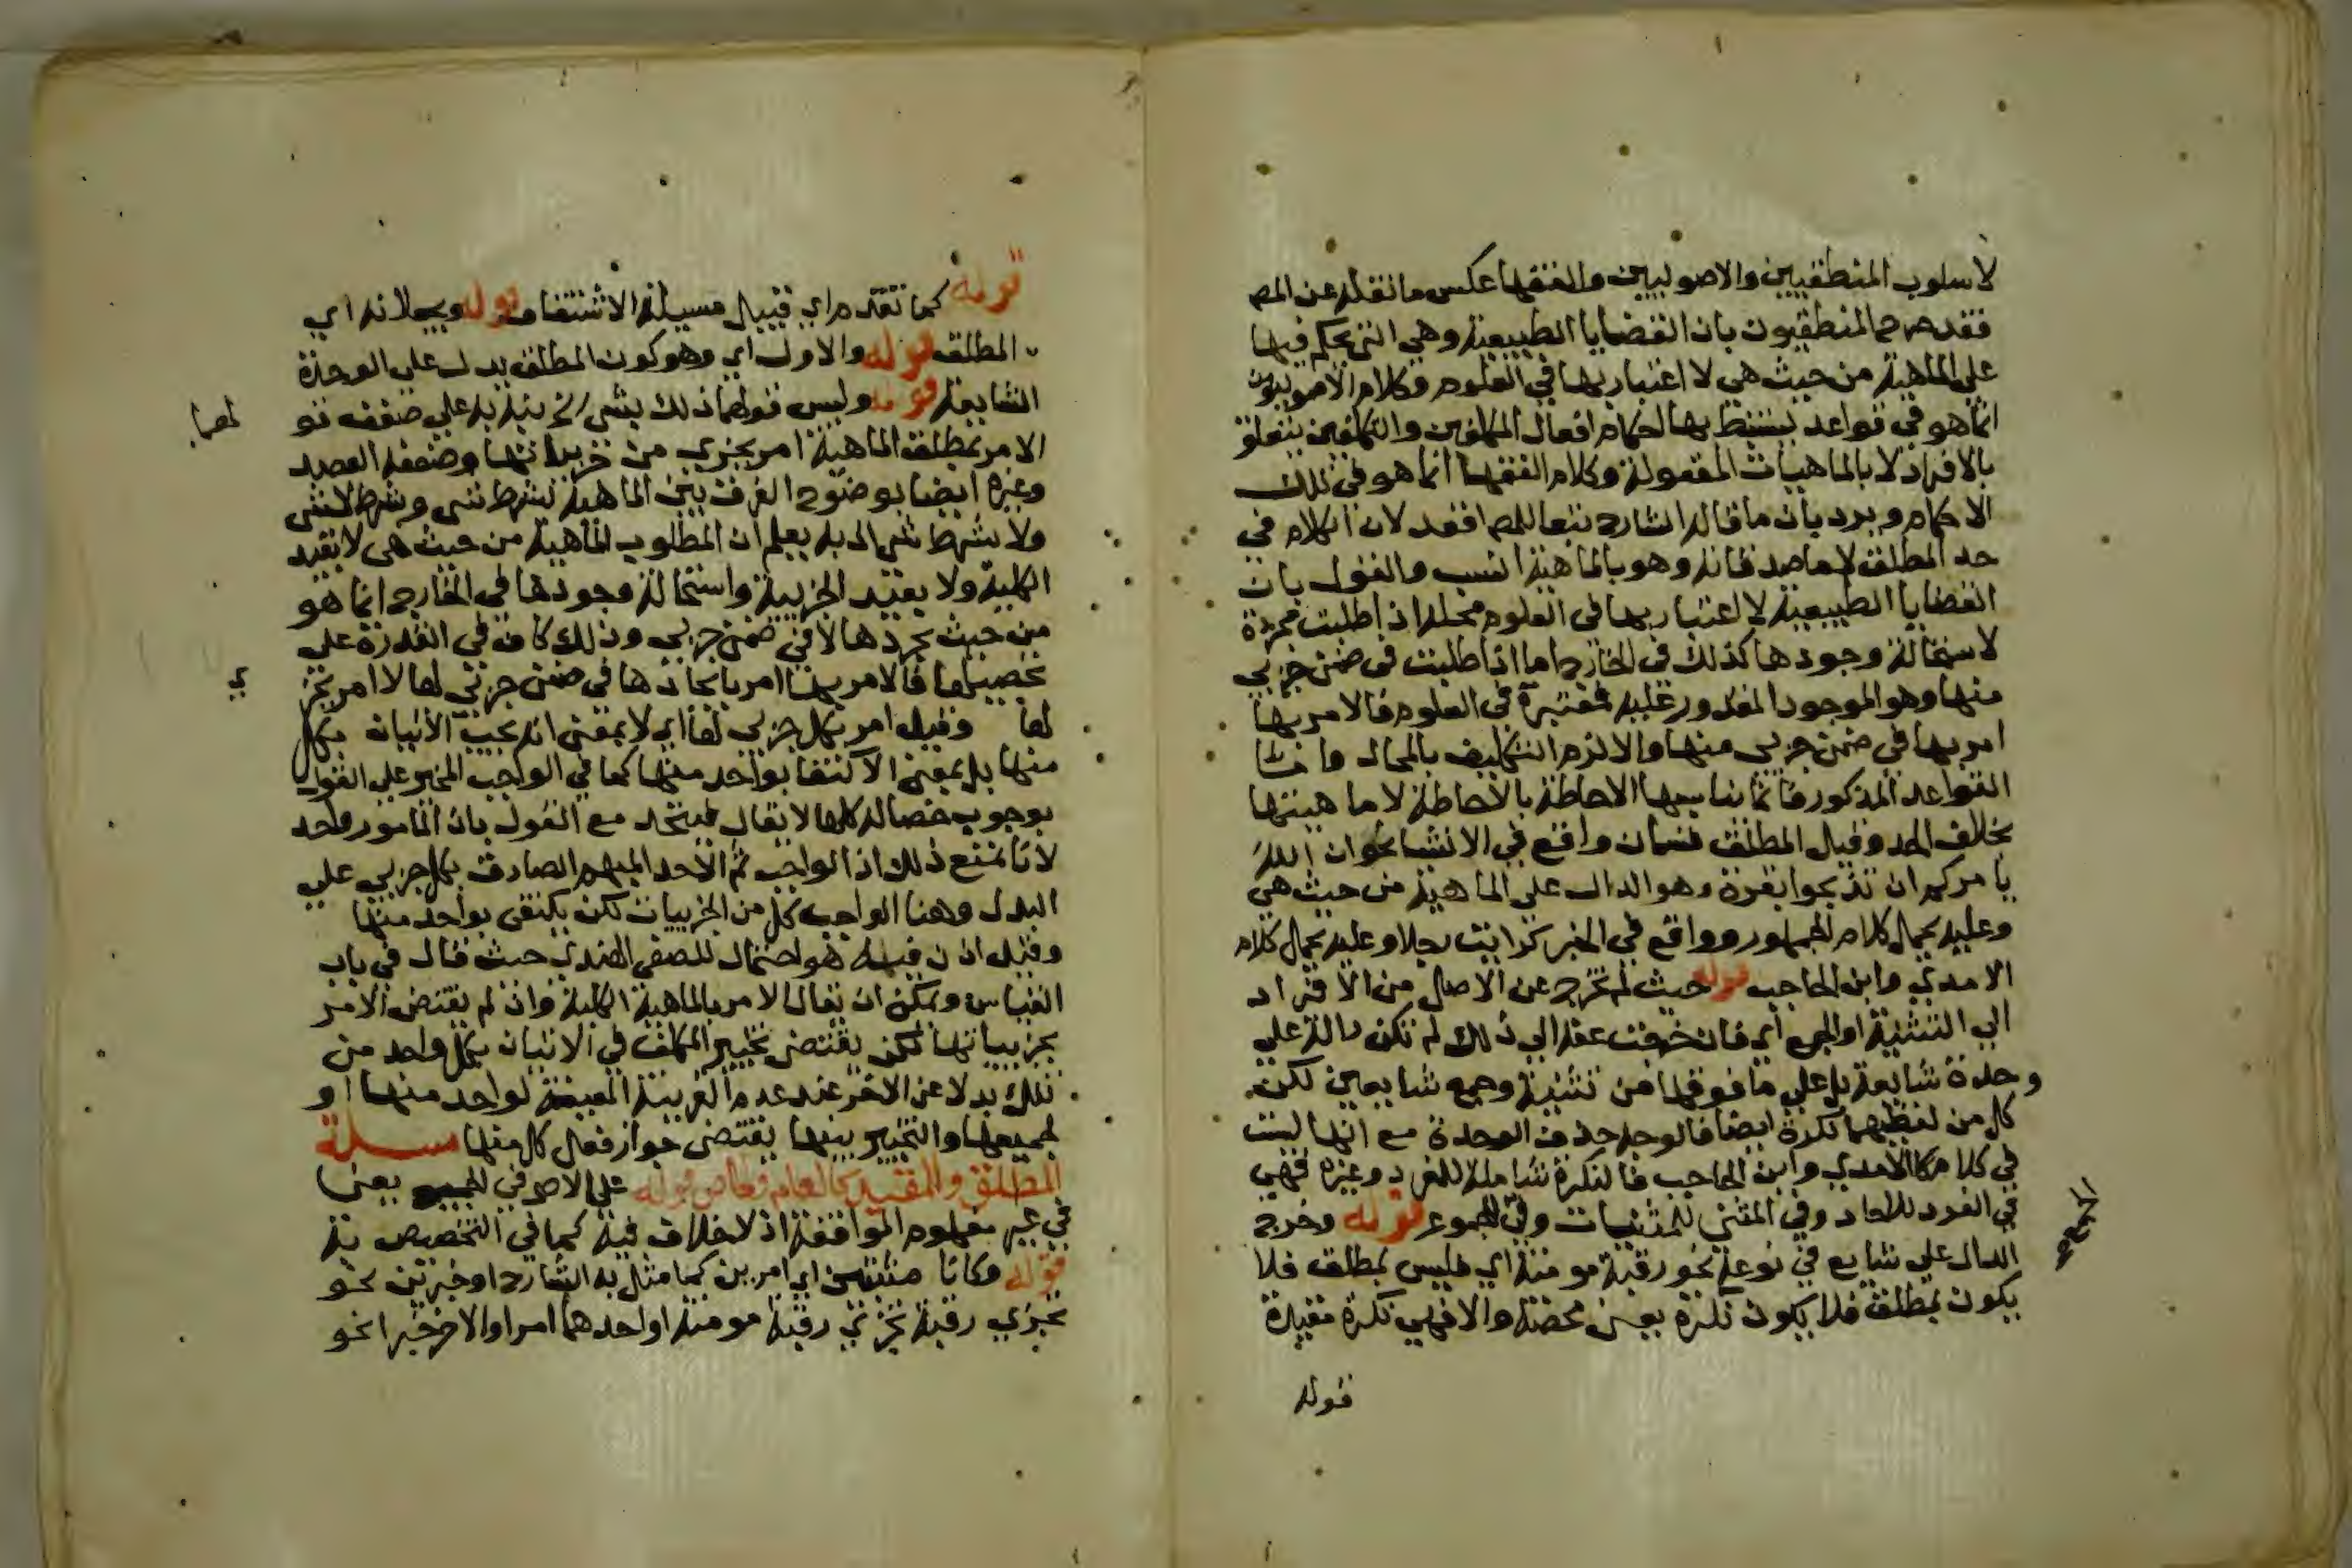 لاسلوب المنطقيين والاصوليين والفقها عكس ما نقله عن المص
فقد صرح المنطقيون بان القضايا الطبيعية وهي التي يحكم فيها
على الماهية من حيث هي لا اعتبار بها في العلوم وكلام الاصوليون
انما هو في قواعد يستنبط بها احكام افعال المكلفين والتكليف يتعلق
بالافراد لا بالماهيات المعقولة وكلام الفقها انما هو في تلك
الاحكام ويرد بان ما قاله الشارح تبعا للمص اقعد لان الكلام في
حد المطلق لا ماصدقاته وهو بالماهية انسب والقول بان
القضايا الطبيعية لا اعتبار بها في العلوم محله اذا طلبت مجردة
لاستحالة وجودها كذلك في الخارج اما اذا طلبت في ضمن جزيي
منها وهو الموجود المقدور عليه فمعتبرة في العلوم فالامر بها
امر بها في ضمن جزيي منها والا لزم التكليف بالمحال واما
القواعد المذكورة فانما يناسبها الاحاطة بالاحاطة لا ماهيتها
بخلاف الحد وقيل المطلق قسمان واقع في الانشا نحو ان الله
يامركم ان تذبحوا بقرة وهو الدال على الماهية من حيث هي
وعليه يحمل كلام الجمهور وواقع في الخبر كرايت رجلا وعليه يحمل كلام
الامدي وابن الحاجب قوله حيث لم تخرج عن الاصل من الافراد
الى التثنية او الجمع اي فان خرجت عنه الى ذلك لم تكن دالة على
وحدة شايعة بل على ما فوقها من تثنية وجمع شايعين لكن
كل من لفظيهما نكرة ايضا فالوجه حذف الوحدة مع انها ليست
في كلام الامدي وابن الحاجب فالنكرة شاملة للمفرد وغيره فهي
في الفرد للاحاد وفي المثنى للمثنيات وفي المجموع قوله وخرج
للجموع
الدال على شايع في نوعه نحو رقبة مومنة اي فليس بمطلق فلا
يكون بمطلق فلا يكون نكرة يعني محضة والا فهي نكرة مقيدة
قوله
قوله كما تقدم اي قبيل مسيلة الاشتقاق قوله ويجعلانه اي
المطلق قوله والاول اي وهو كون المطلق يدل على الوحدة
الشايعة قوله وليس قولهما ذلك بشي
الامر بمطلق الماهية امر بجزيي من جزيياتها وضعفه العضد
وغيره ايضا بوضوح الفرق بين الماهية بشرط شي وشرط لا شي
ولا بشرط شي اذ به يعلم ان المطلوب الماهية من حيث هي لا بقيد
الكلية ولا بقيد الجزيية واستحالة وجودها في الخارج انما هو
من حيث تجردها لا في ضمن جزيي وذلك كاف في القدرة على
تحصيلها فالامر بها امر بايجادها في ضمن جزيي لها لا امر بجز
ي
لها وقيل امر بكل جزيي لها اي لا بمعنى انه يجب الاتيان بكل
منها بل بمعنى الاكتفا بواحد منها كما في الواجب المخير على القول
بوجوب خصاله كلها لا يقال فيتحد مع القول بان المامور واحد
لانا نمنع ذلك اذ الواجب ثم الاحد المبهم الصادق بكل جزيي على
البدل وهنا الواجب كل من الجزييات لكن يكتفى بواحد منها
وقيل اذن فيه هو احتمال للصفي الهندي حيث قال في باب
القياس ويمكن ان يقال الامر بالماهية الكلية وان لم يقتض الامر
بجزيياتها لكن يقتضي تخيير المكلف في الاتيان بكل واحد من
تلك بدلا عن الاخر عند عدم القرينة المعينة لواحد منها او
لجميعها والتخيير بينها يقتضي جواز فعل كل منها مسيلة
المطلق والمقيد كالعام والخاص قوله على الاصح في الجميع يعني
في غير مفهوم الموافقة اذ لا خلاف فيه كما في التخصيص به
قوله وكانا مثبتين اي امرين كما مثل به الشارح او خبرين نحو
تجزي رقبة تجزي رقبة مومنة او احدهما امرا والاخر خبرا نحو